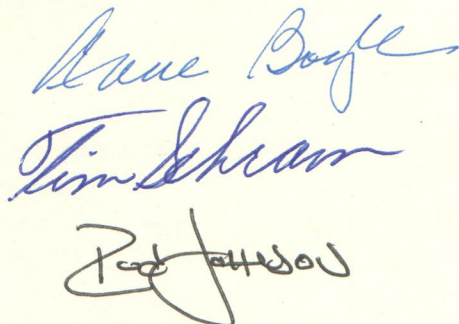 Anne Boyle
Tim Schram
Rod Johnson